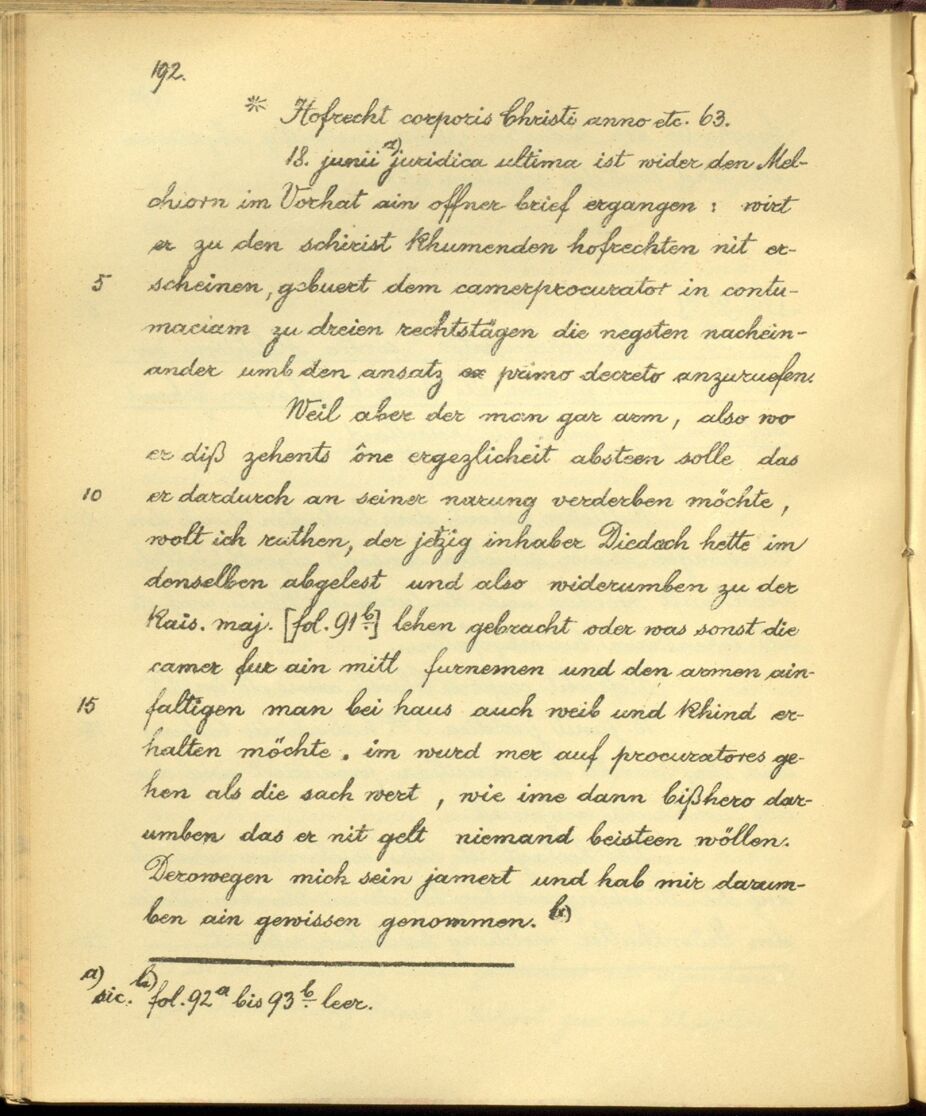 192.
※ Hofrecht corporis Christi anno etc. 63.
18. junii a) juridica ultima ist wider den Mel-
chiorn im Vorhat ain offner brief ergangen : wirt
er zu den schirist khumenden hofrechten nit er-
5 scheinen, gebuert dem camerprocurator in contu-
maciam zu dreien rechtstägen die negsten nachein-
ander umb den ansatz ex primo decreto anzuruefen.
Weil aber der man gar arm, also wo
er diß zehents ône ergezlicheit absteen solle das
10 er dardurch an seiner narung verderben möchte,
wolt ich rathen, der jetzig inhaber Diedoch hette im
denselben abgelest und also widerumben zu der
Kais. maj. [fol. 91 b.] lehen gebracht oder was sonst die
camer fur ain mitl furnemen und den armen ain-
15 faltigen man bei haus auch weib und khind er-
halten möchte. im wurd mer auf procuratores ge-
hen als die sach wert, wie ime dann bißhero dar-
umben das er nit gelt niemand beisteen wöllen.
Derowegen mich sein jamert und hab mir darum-
ben ain gewissen genommen. b)
a) sic. b) fol. 92 a bis 93 b. leer.